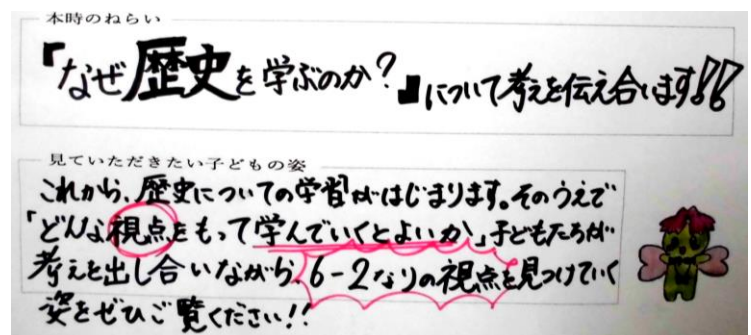 本時のねらい
『なぜ歴史を学ぶのか？』について考えを伝え合います!!
見ていただきたい子どもの姿
これから、歴史についての学習がはじまります。そのうえで
「どんな視点をもって学んでいくとよいか」子どもたちが
考えを出し合いながら、6-2なりの視点を見つけていく
姿をぜひご覧ください!!